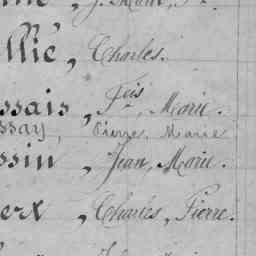 llié, Charles.
ssais, Fçis, Marie.
ssay, Pierre, Marie
ssin, Jean, Marie.
erx, Charles, Pierre.